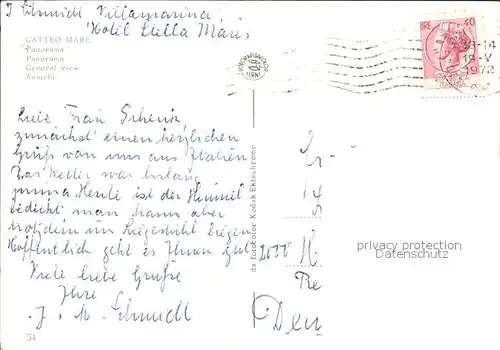 J Schmidt Villamarina,
Hotel Stella Maris
GATTEO MARE
Panorama
Panorama
General view
Ansicht
LIRE 40
18-14
19-V
1972
Liebe Frau Schenk,
zunächst einen herzlichen
Gruß von uns aus Italien
Das Wetter war bislang
prima Heute ist der Himmel
bedeckt man kann aber
trotzdem im Liegestuhl liegen
Hoffentlich geht es Ihnen gut
Viele liebe Grüße
Ihre
J. + M. Schmidt
51
da fotocolor Kodak Ektachrome
2000 H
privacy protection
Datenschutz